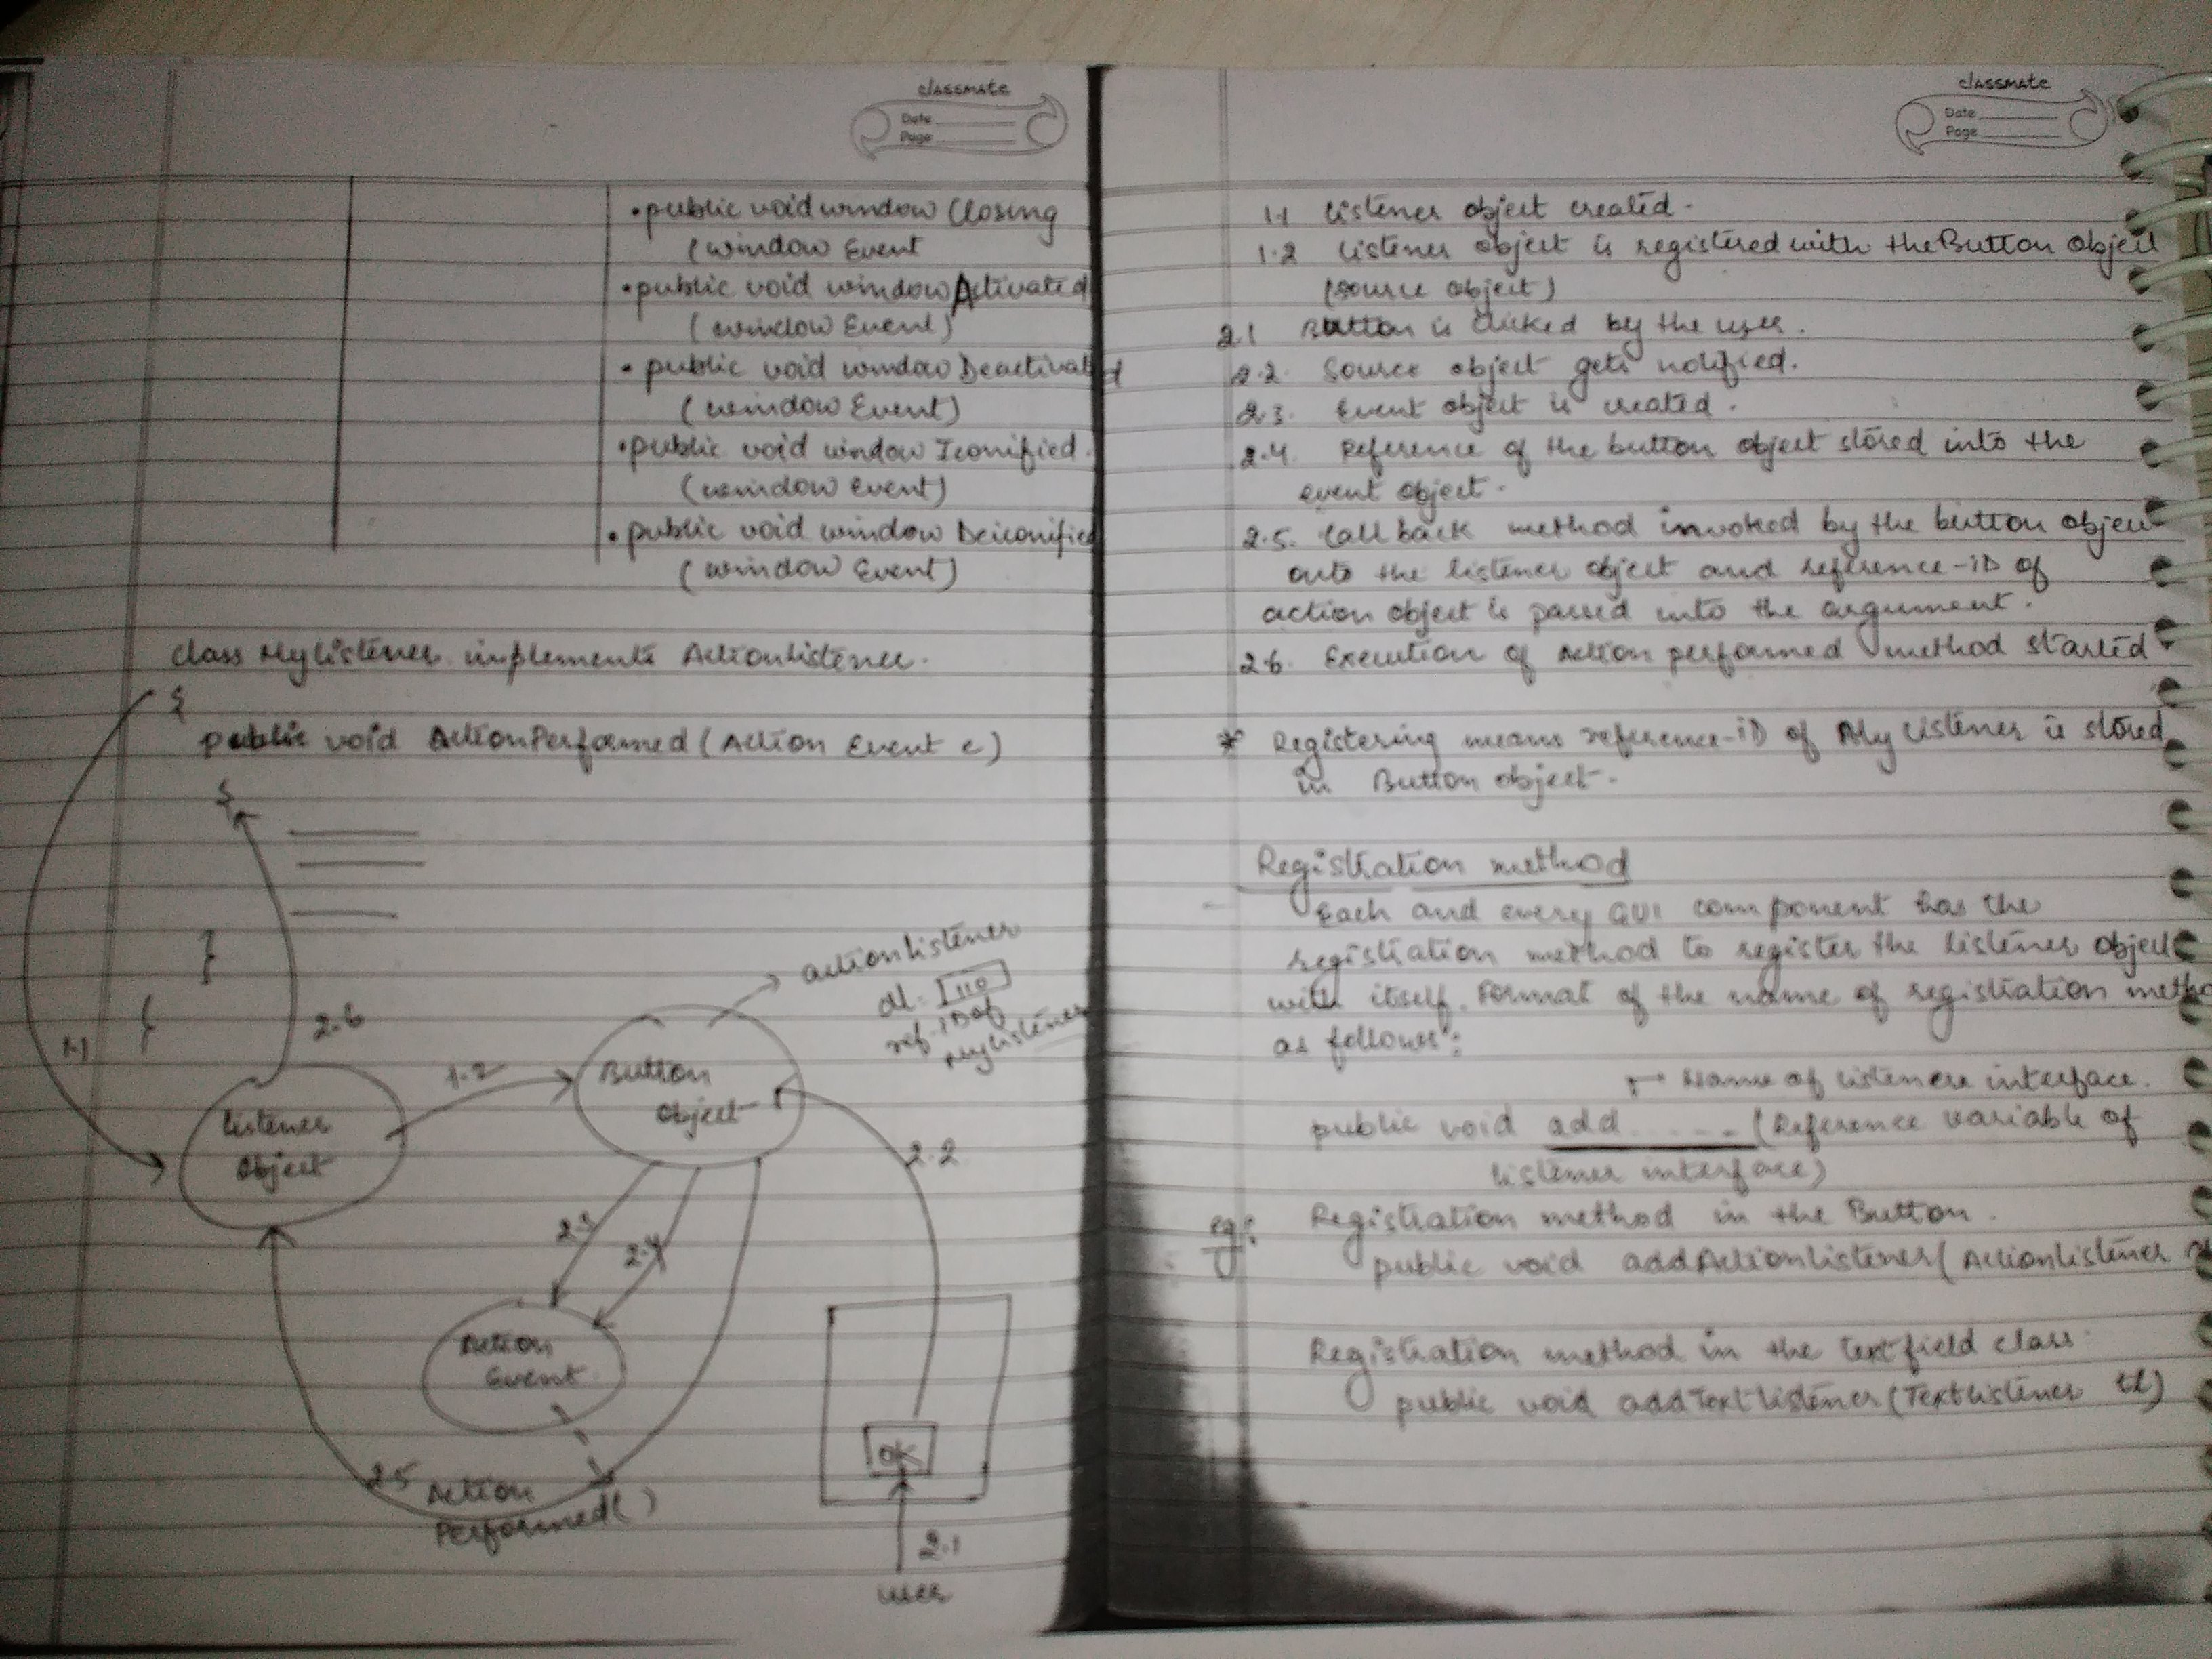 classmate
Date
Page
• public void window Closing
(window Event
• public void window Activated
(window Event)
• public void window Deactivated
(window Event)
• public void window Iconified
(window Event)
• public void window Deiconified
(window Event)
class MyListener implements ActionListener.
{
public void ActionPerformed (Action Event e)
{
}
}
1.1
2.6
1.2
Listener
Object
Button
Object
actionlistener
al. 110
ref. ID of
MyListener
2.2
2.3
2.4
Action
Event
2.5 Action
Performed( )
OK
2.1
user
classmate
Date
Page
1.1 Listener object created.
1.2 Listener object is registered with the Button object
(source object)
2.1 Button is clicked by the user.
2.2 Source object gets notified.
2.3. Event object is created.
2.4. Reference of the button object stored into the
event object.
2.5. Call back method invoked by the button object
onto the listener object and reference-iD of
action object is passed into the argument.
2.6. Execution of Action performed method started
* Registering means reference-iD of My Listener is stored
in Button object.
Registration method
Each and every GUI component has the
registration method to register the listener object
with itself. Format of the name of registration metho
as follows:
Name of listener interface.
public void add ...... (Reference variable of
listener interface)
eg: Registration method in the Button.
public void addActionListener( ActionListener
Registration method in the textfield class.
public void addTextListener (TextListener tl)